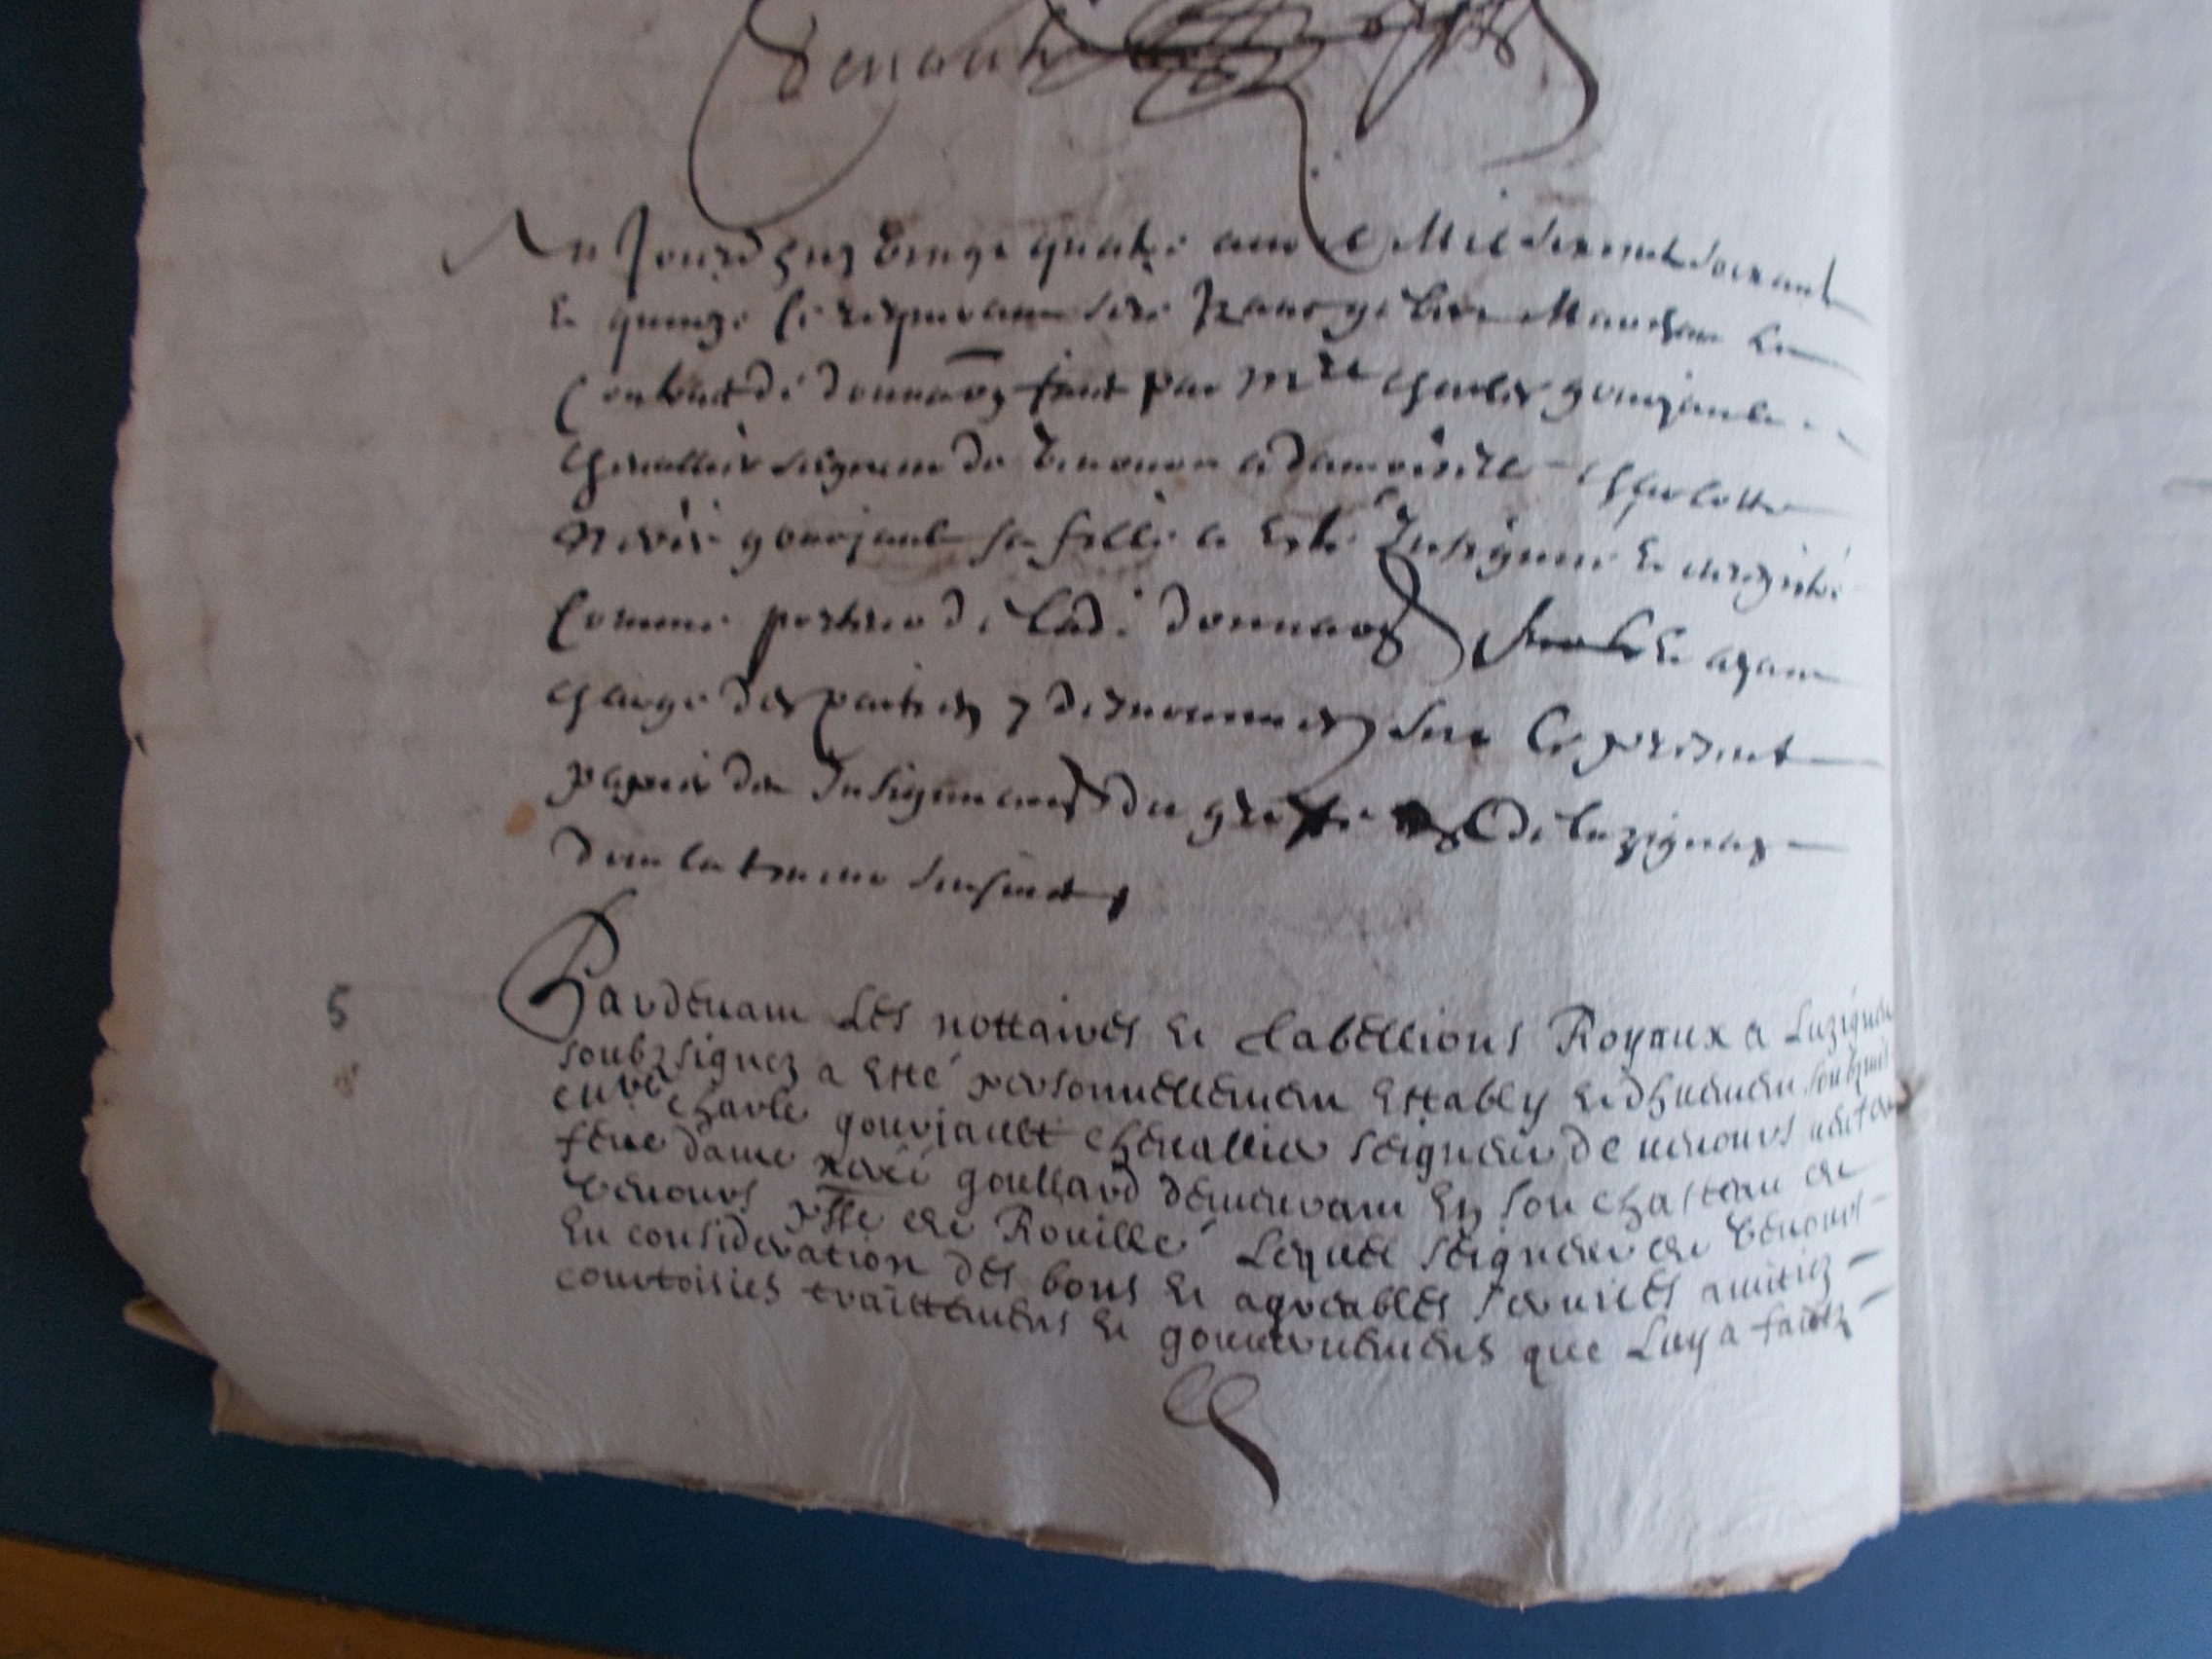 Au Jourdhuy vingt quatre avril Mil six cent soixante
et quinze le requerant sire françois Marchan le
Contract de donnaon fait par Mre Charles gourjault
Chevallier seigneur de Venours a damoiselle Charlotte
Nérée gourjault sa fille a esté Insignué et enregistré
Comme porteur de lad. donnaon et ayant
charge des parties y desnommées sur le present
papier des Insignuaons du greffe de luzignan
dont la teneur sensuit
5
Pardevant Les nottaires et Tabellions Royaux a Luzignan
soubzsignez a esté personnellement Estably et dhuement soubzmis
charle gourjault chevallier seigneur de venours
feue dame goullard demeurant En son chasteau de
Venours psse de Rouillé Lequel seigneur de Venours
En consideration des bons et agreables services amitiez
courtoisies traittements et gouvernements que Luy a faictz